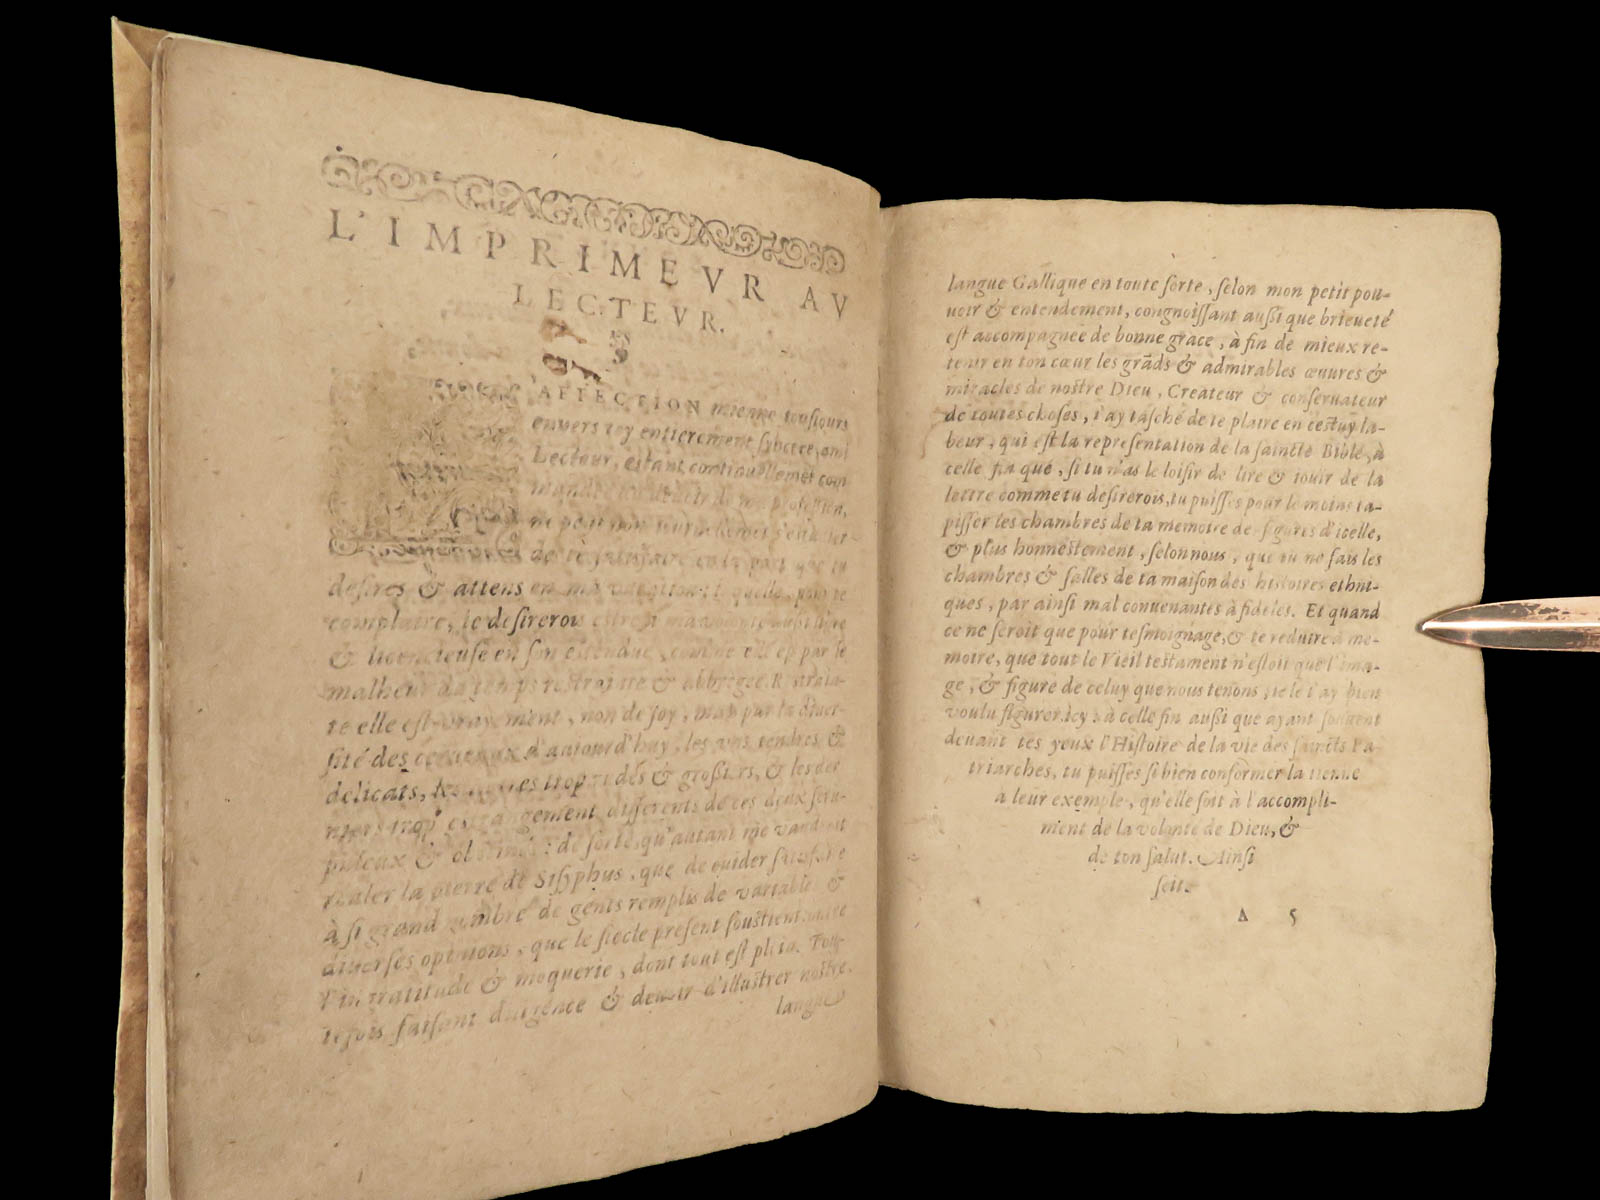 L'IMPRIMEVR AV
LECTEVR.
AFFECTION mienne tousiours
enuers toy entierement syncere, ami
Lecteur, estant continuellemẽt com
mandee du deuoir de ma profession,
ne peut
de te satisfaire en la part que tu
desires & attens en ma vacation: laquelle, pour te
complaire, ie desirerois estre
& licencieuse en son estendue, comme ell' est par le
malheur du temps restrainte & abbregee. Restrain-
te elle est vrayement, non de soy, mais par la diuer-
sité des cerueaux d'auiourd'huy, les vns tendres &
delicats, les autres trop rudes & grossiers, & les der
niers trop estrangement differents de ces deux scru-
puleux & obstinez: de sorte, qu'autant me vaudroit
rouler la pierre de Sisyphus, que de cuider satisfaire
à si grand nombre de gents remplis de variables &
diuerses opinions, que le siecle present soustient, outre
l'ingratitude & moquerie, dont tout est plein. Tou-
tefois faisant diligence & deuoir d'illustrer nostre
langue
langue Gallique en toute sorte, selon mon petit pou-
uoir & entendement, congnoissant aussi que brieueté
est accompagnée de bonne grace, à fin de mieux re-
tenir en ton cœur les grãds & admirables œuures &
miracles de nostre Dieu, Createur & conseruateur
de toutes choses, i'ay tasché de te plaire en cestuy la-
beur, qui est la representation de la saincte Bible, à
celle fin que, si tu n'as le loisir de lire & iouir de la
lettre comme tu desirerois, tu puisses pour le moins ta-
pisser les chambres de ta memoire des figures d'icelle,
& plus honnestement, selon nous, que tu ne fais les
chambres & salles de ta maison des histoires ethni-
ques, par ainsi mal conuenantes à fideles. Et quand
ce ne seroit que pour tesmoignage, & te reduire à me-
moire, que tout le Vieil testament n'estoit que l'ima-
ge, & figure de celuy que nous tenons, ie le t'ay bien
voulu figurer icy: à celle fin aussi que ayant souuent
deuant tes yeux l'Histoire de la vie des saincts Pa-
triarches, tu puisses si bien conformer la tienne
à leur exemple, qu'elle soit à l'accompli-
ment de la volonté de Dieu, &
de ton salut. Ainsi
soit.
A 5